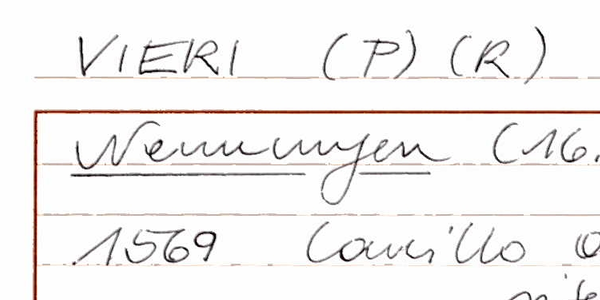 VIERI (P) (R)
Nennungen (16.
1569 Camillo